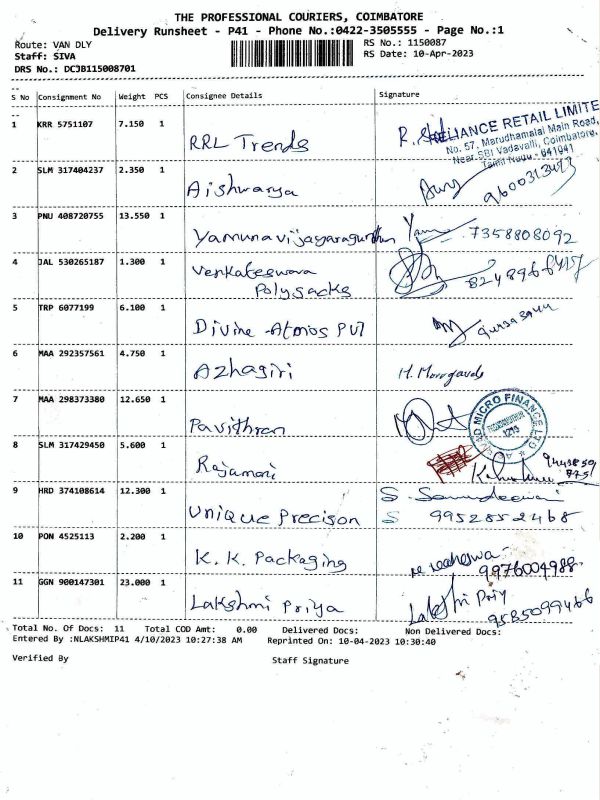 THE PROFESSIONAL COURIERS, COIMBATORE
Delivery Runsheet - P41 - Phone No.:0422-3505555 - Page No.:1
Route: VAN DLY
RS No.: 1150087
Staff: SIVA
RS Date: 10-Apr-2023
DRS No.: DCJB115008701
S No Consignment No Weight PCS Consignee Details Signature
1 KRR 5751107 7.150 1 RRL Trends
RELIANCE RETAIL LIMITE
No. 57, Marudhamalai Main Road,
Near SBI Vadavalli, Coimbatore.
Tamil Nadu - 641041
2 SLM 317404237 2.350 1 Aishwarya
3 PNU 408720755 13.550 1 Yamunavijayaragunthan 7358808092
4 JAL 530265187 1.300 1 Venkateswara
Polysacks
5 TRP 6077199 6.100 1 Divine Atmos PVT
6 MAA 292357561 4.750 1 Azhagiri
7 MAA 298373380 12.650 1 Pavithran
MICRO FINANCE LTD
8 SLM 317429450 5.600 1 Rajamani
9 HRD 374108614 12.300 1 Unique Precison
S 9952852468
10 PON 4525113 2.200 1 K.K. Packaging
9976004988
11 GGN 900147301 23.000 1 Lakshmi Priya Lakshmi Priy
9585099466
Total No. Of Docs: 11 Total COD Amt: 0.00 Delivered Docs: Non Delivered Docs:
Entered By :NLAKSHMIP41 4/10/2023 10:27:38 AM Reprinted On: 10-04-2023 10:30:40
Verified By Staff Signature